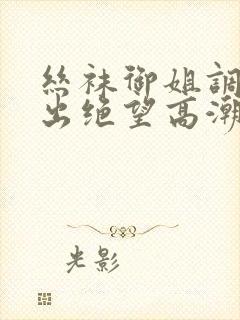 絲袜御姐調
出绝望高潮
光影